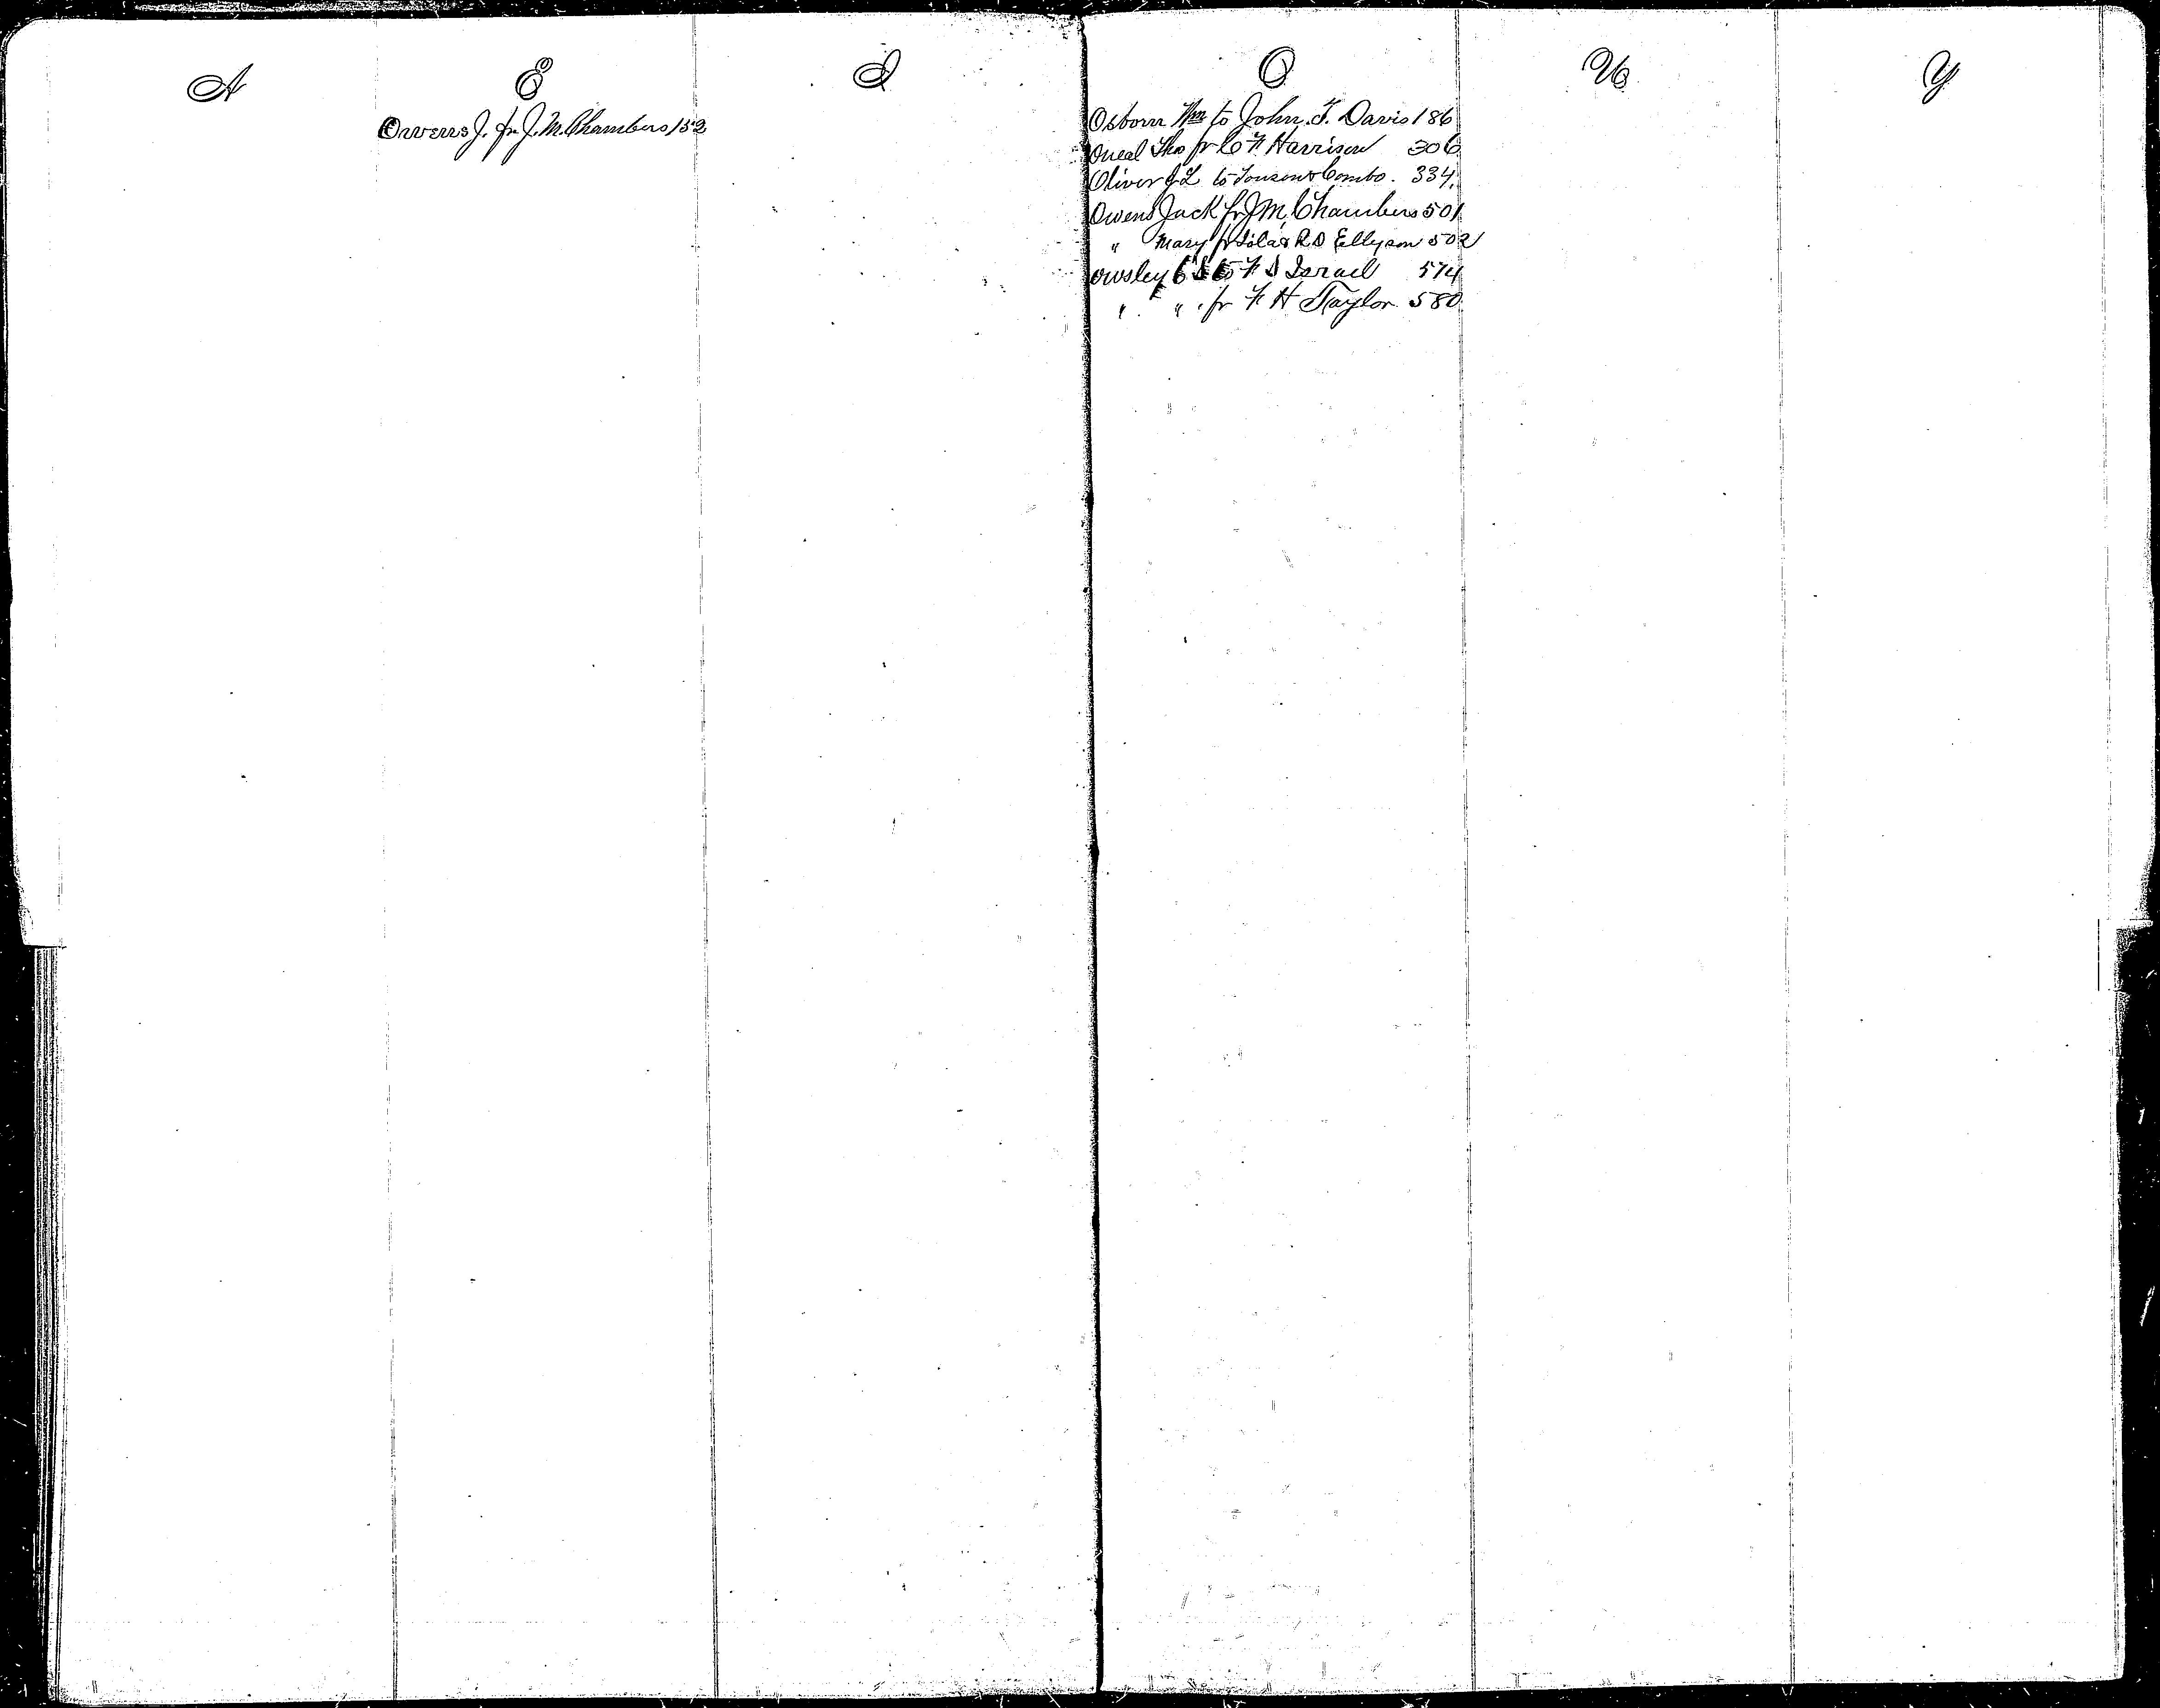 A
E
Owens J. fr J. M. Chambers 152
I
O
Osborn Wm to John. F. Davis 186
Oneal Thos fr C F Harrison 306
Oliver J L to Touson & Combo. 334,
Owens Jack fr J M, Chambers 501
" Mary fr Silas R D Ellyson 502
Owsley C S to F S Israel 574
" " fr F H Taylor 580
U
Y